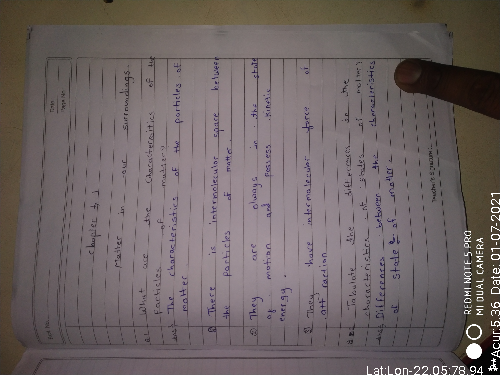 Date
Page No.
Chapter :- 1
Matter in our surroundings.
Q.1 What are the characteristics of the
Particles of matter?
Ans:- The characteristics of the particles of
matter
1) There is intermolecular space between
the particles of matter
2) They are always in the state
of motion and possess kinetic
energy.
3) They have intermolecular force of
attraction
Q.2 Tabulate the differences in the
characteristics of states of matter?
Ans:- Differences between the characteristics
of state of matter
Teacher's Signature
REDMI NOTE 5 PRO
MI DUAL CAMERA
Lat:Lon-22.05:78.94
**Acur:5.36 Date: 01-07-2021